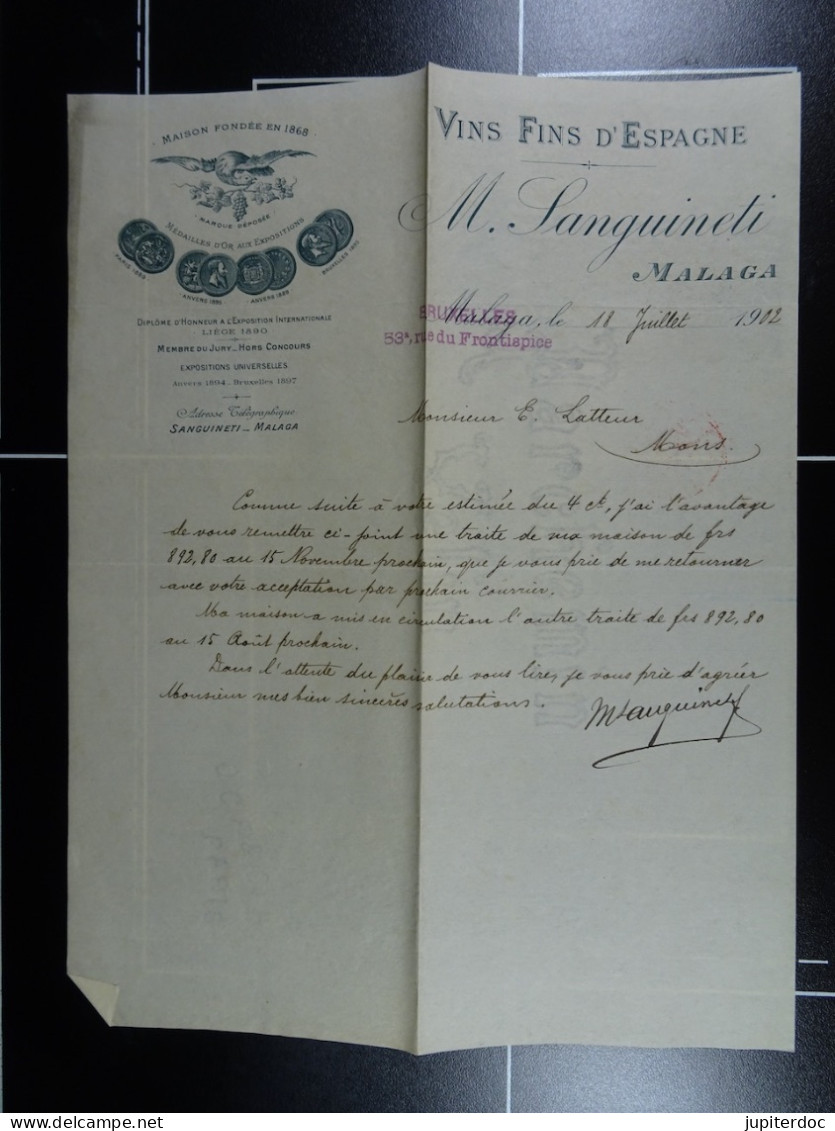 MAISON FONDÉE EN 1868
MARQUE DÉPOSÉE
MÉDAILLES D'OR AUX EXPOSITIONS
PARIS
ANVERS 1885
ANVERS
BRUXELLES
DIPLÔME D'HONNEUR A L'EXPOSITION INTERNATIONALE
LIÈGE 1890
MEMBRE DU JURY _ HORS CONCOURS
EXPOSITIONS UNIVERSELLES
Anvers 1894 _ Bruxelles 1897
Adresse Télégraphique
SANGUINETI _ MALAGA
VINS FINS D'ESPAGNE
M. Sanguineti
MALAGA
Malaga, le 18 Juillet 1902
BRUXELLES
53a, rue du Frontispice
Monsieur E. Latteur
Mons.
Comme suite à votre estimée du 4 ct, j'ai l'avantage
de vous remettre ci-joint une traite de ma maison de frs
892,80 au 15 Novembre prochain, que je vous prie de me retourner
avec votre acceptation par prochain courrier.
Ma maison a mis en circulation l'autre traite de frs 892,80
au 15 Août prochain.
Dans l'attente du plaisir de vous lire, je vous prie d'agréer
Monsieur mes bien sincères salutations.
MSanguineti
Delcampe.net
jupiterdoc